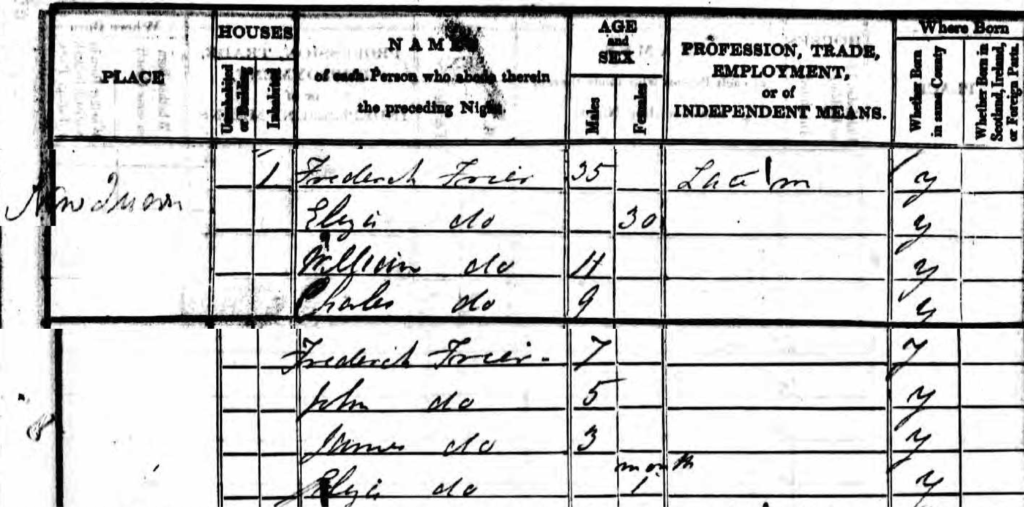 PLACE
HOUSES
Uninhabited or Building
Inhabited
NAMES
of each Person who abode therein
the preceding Night.
AGE
and
SEX
Males
Females
PROFESSION, TRADE,
EMPLOYMENT,
or of
INDEPENDENT MEANS.
Where Born
Whether Born in same County
Whether Born in Scotland, Ireland, or Foreign Parts.
1 Frederick Frier 35 y
Eliza do 30 y
William do 11 y
Charles do 9 y
Frederick Frier 7 y
John do 5 y
James do 3 y
month
Eliza do 1 y